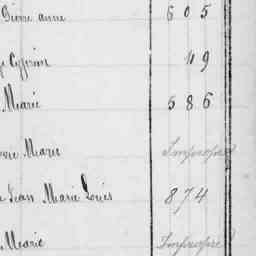 Pierre anne 605
Cyprien 49
Marie 586
Marie Impropre
Jean Marie Louis 874
Marie Impropre